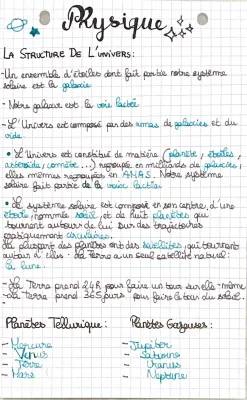 Physique
LA STRUCTURE DE L'UNIVERS:
-Un ensemble d'étoiles dont fait partie notre système
solaire est la galaxie
-Notre galaxie est la voie lactée
-L'Univers est composé par des amas de galaxies et du
vide
• L'Univers est constitué de matière (planète, étoiles,
astéroïde, comète...) regroupé en milliards de galaxies,
elles mêmes regroupés en AMAS. Notre système
solaire fait partie de la voie lactée.
• Le système solaire est composé en son centre, d'une
étoile nommée soleil, et de huit planètes qui
tournent autour de lui sur des trajectoires
pratiquement circulaires.
La plupart des planètes ont des satellites qui tournent
autour d'elles. La Terre a un seul satellite naturel:
la lune.
-La Terre prend 24h pour faire un tour sur elle-même
-La Terre prend 365 jours pour faire le tour du soleil.
Planètes Tellurique:
- Mercure
- Vénus
- Terre
- Mars
Planètes Gazeuses:
- Jupiter
- Saturne
- Uranus
- Neptune